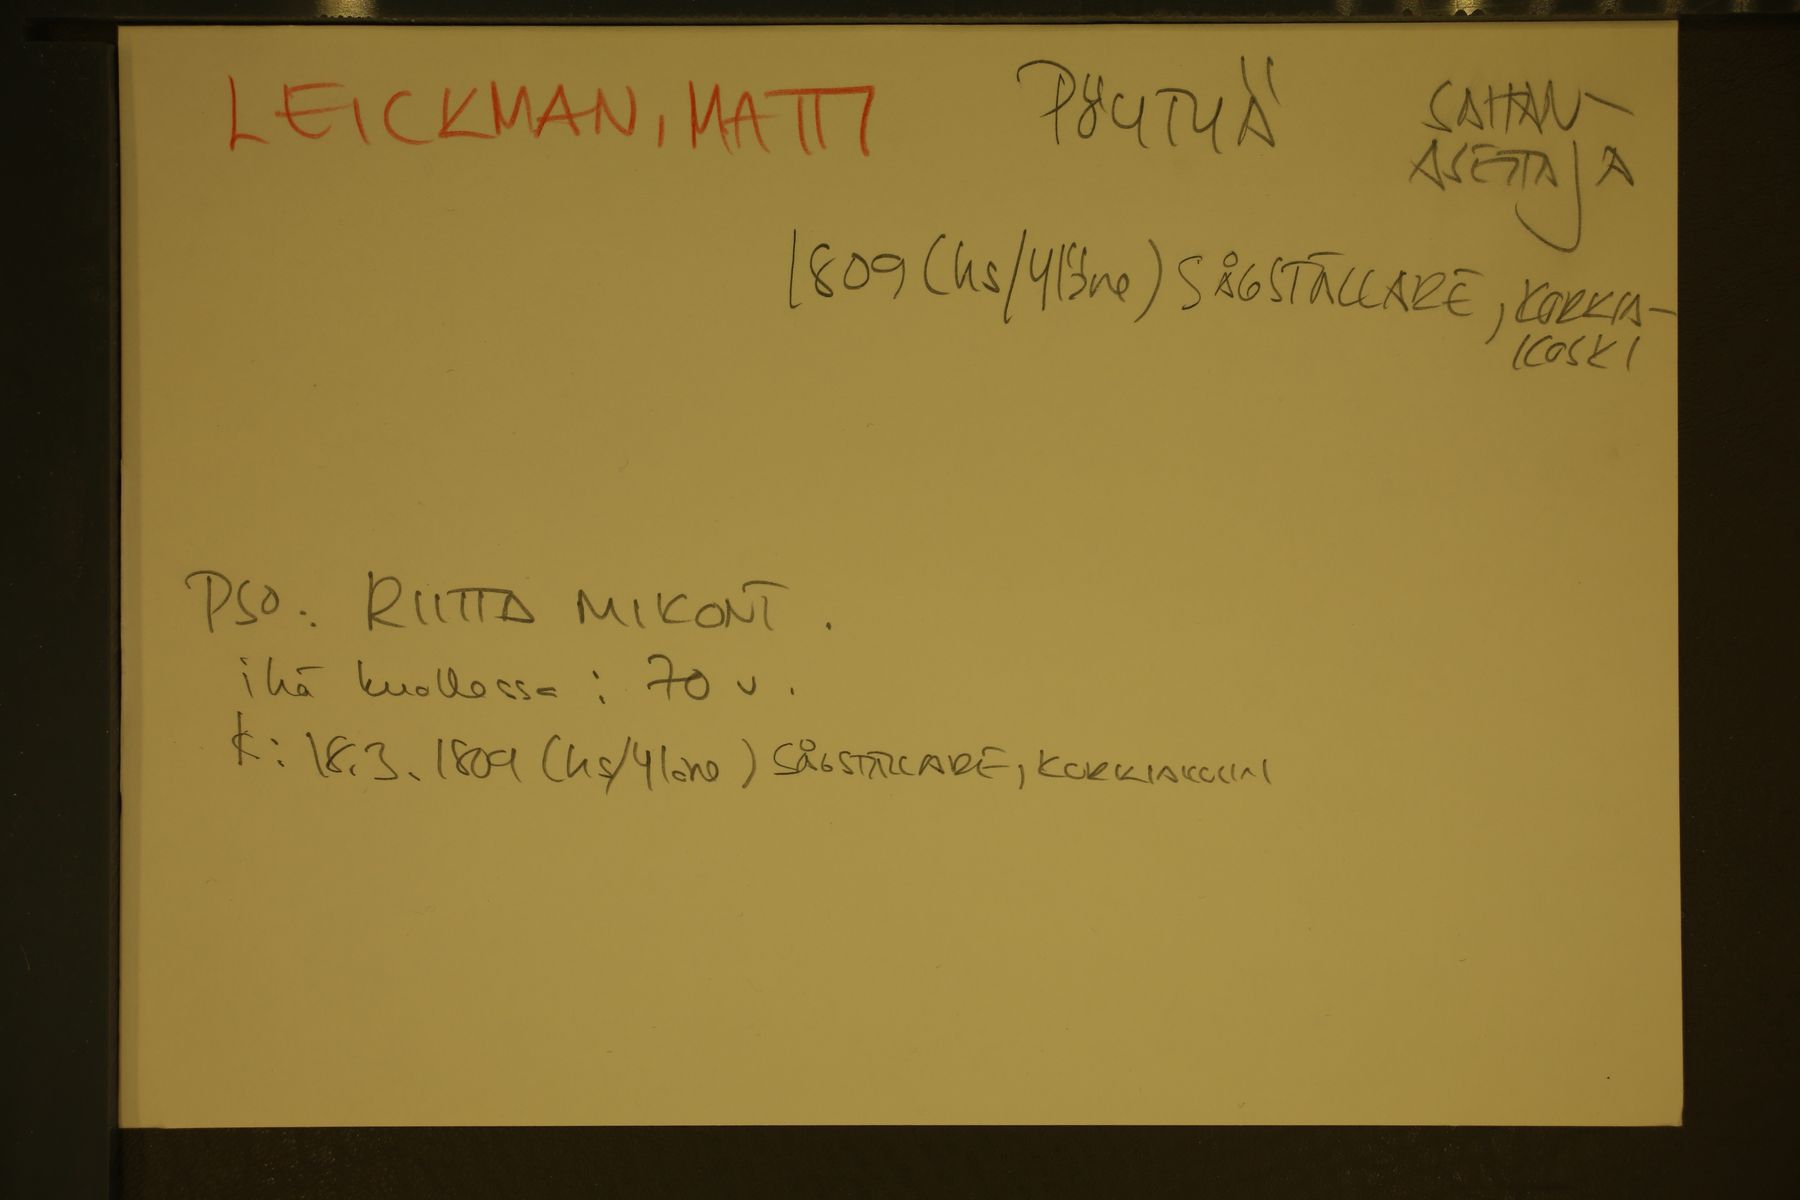 LEICKMAN, MATTI PÖYTYÄ SAHAN-
ASETTAJA
1809 (hs/Yläne) SÅGSTÄLLARE, KORKIA-
KOSKI
PSO: RIITTA MIKONT.
ikä kuollessa: 70 v.
K: 18.3.1809 (hs/Yläne) SÅGSTÄLLARE,